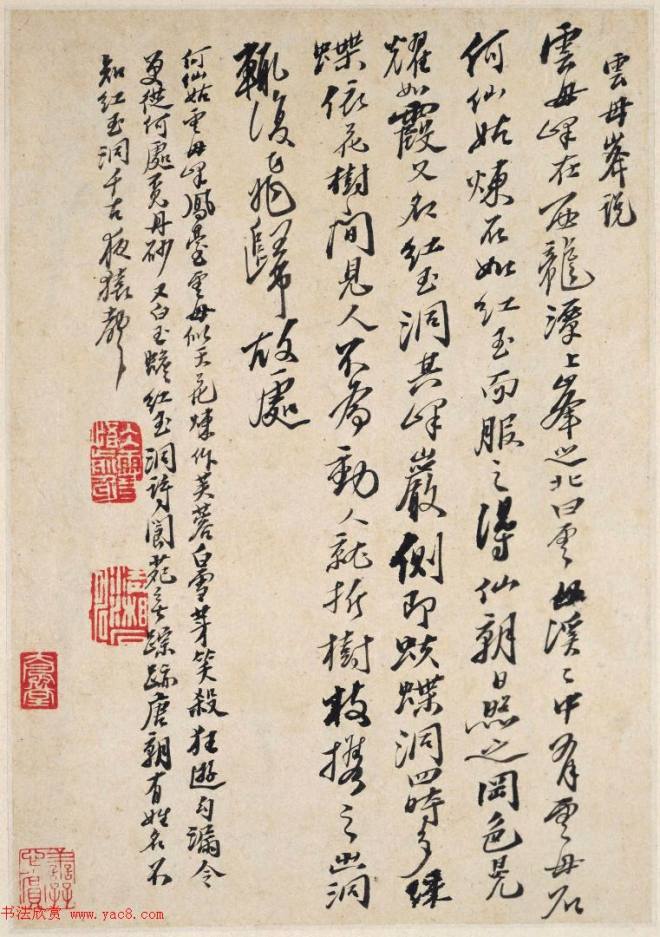 雲母峯說
雲母峰在西龍潭上峯之北曰雲母溪〻中有雲母石
何仙姑煉石如紅玉而服之得仙朝日照之岡色晃
耀如霞又名紅玉洞其峰巖側即蛺蝶洞四時多綵
蝶依花樹間見人不為動人就折樹枝携之出洞
輒復飛歸故處
何仙姑雲母峰鳳臺雲母似天花煉作芙蓉白雪芽笑殺狂遊勾漏令
更從何處覓丹砂又白玉蟾紅玉洞詩閬苑無蹤跡唐朝有姓名不
知紅玉洞千古夜猿聲
书法欣赏 www.yac8.com